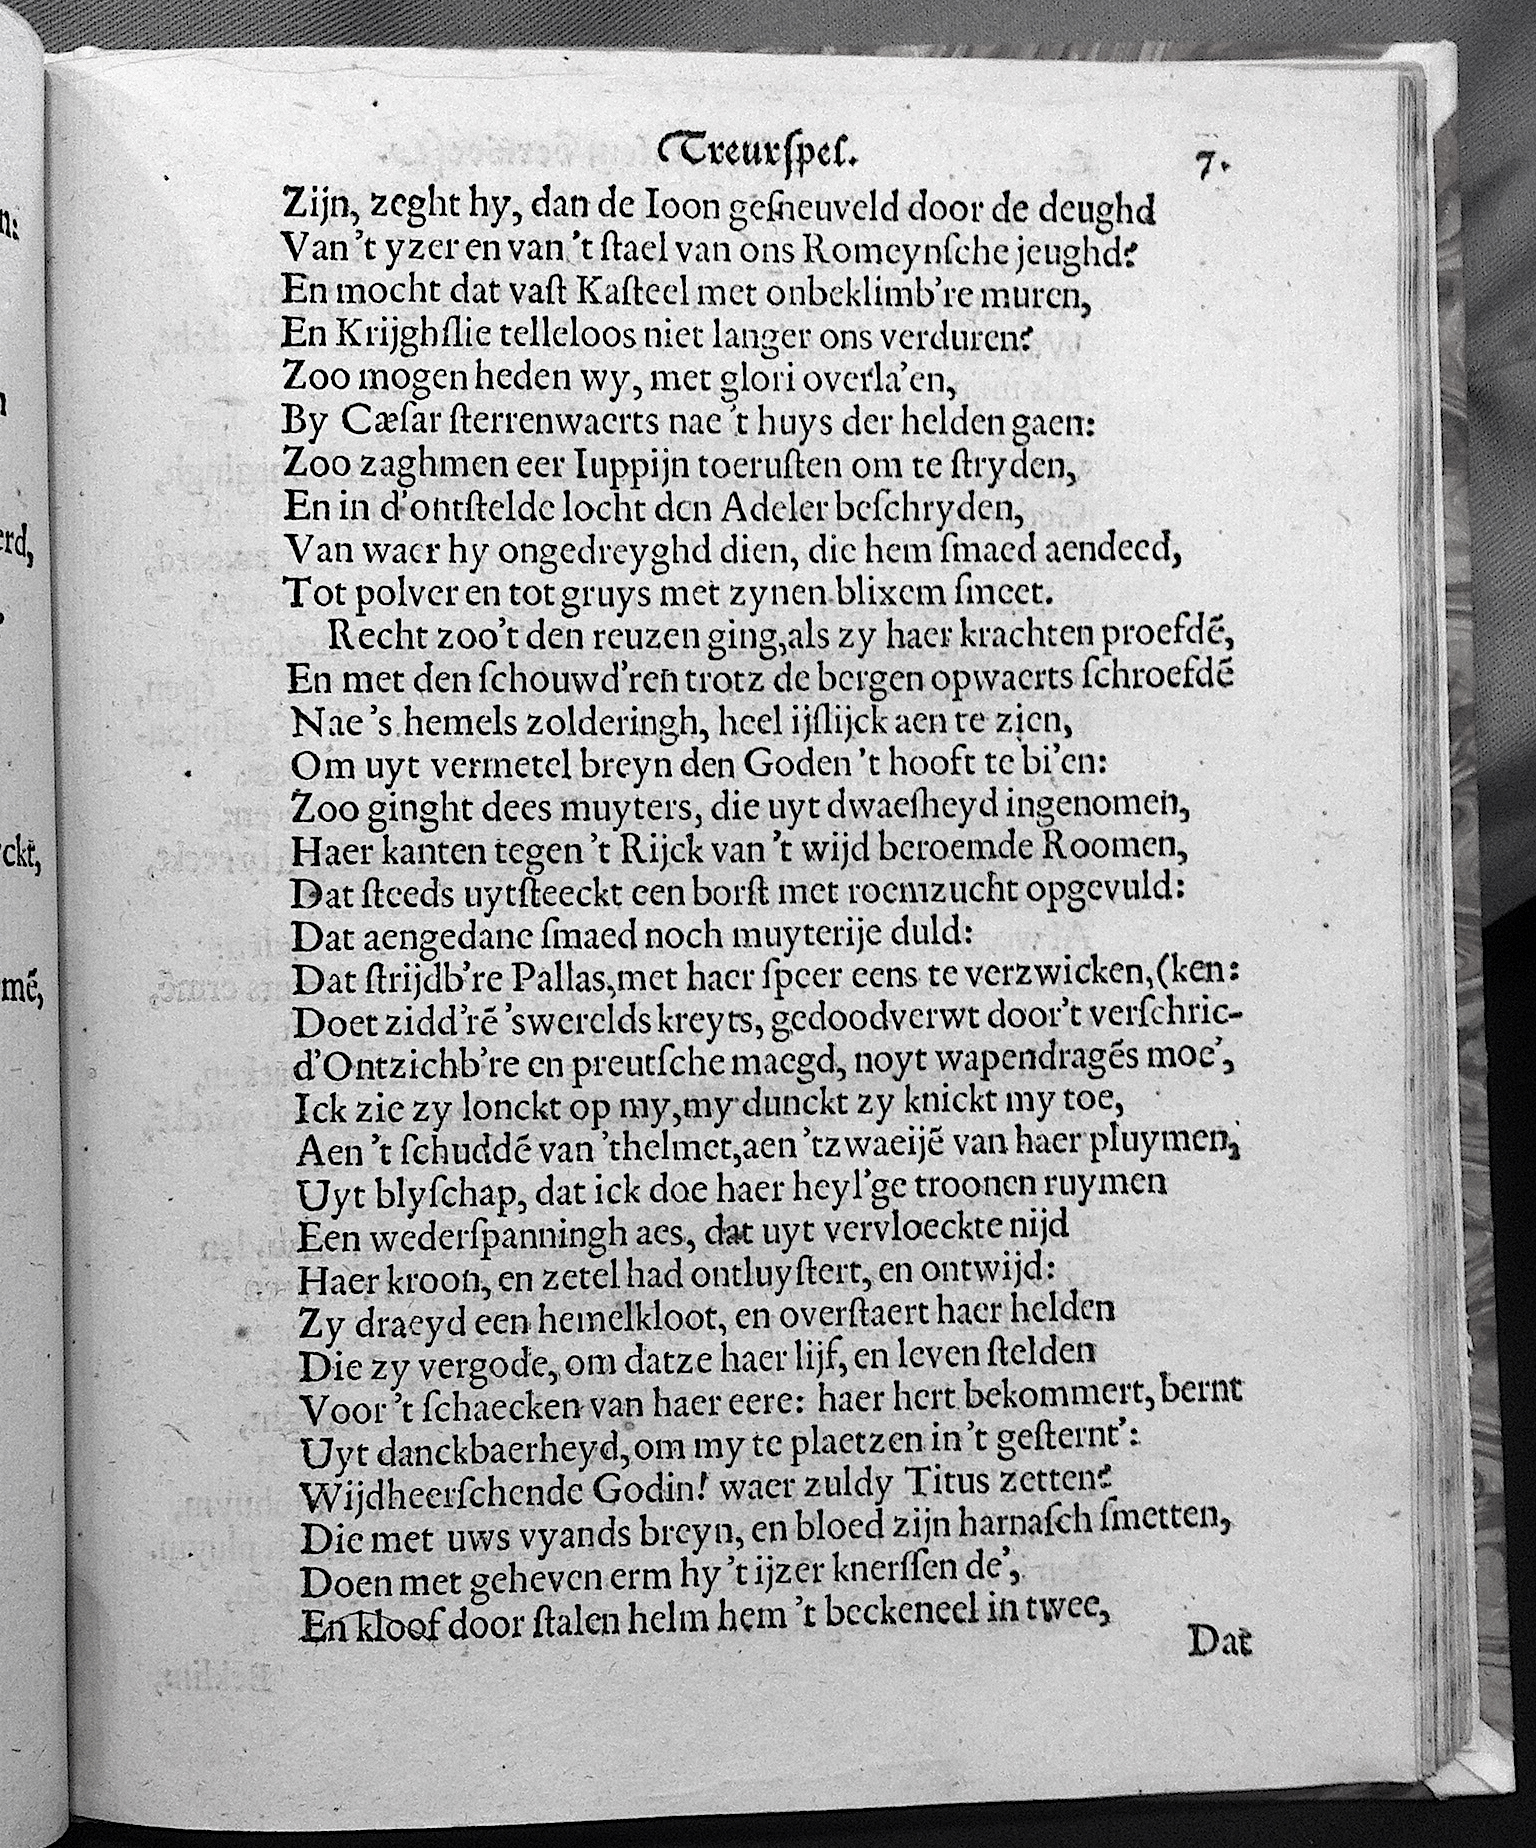 Treurſpel.
7.
Zijn, zeght hy, dan de Ioon geſneuveld door de deughd
Van 't yzer en van 't ſtael van ons Romeynſche jeughd?
En mocht dat vaſt Kaſteel met onbeklimb're muren,
En Krijghſlie telleloos niet langer ons verduren?
Zoo mogen heden wy, met glori overla'en,
By Cæſar ſterrenwaerts nae 't huys der helden gaen:
Zoo zaghmen eer Iuppijn toeruſten om te ſtryden,
En in d'ontſtelde locht den Adeler beſchryden,
Van waer hy ongedreyghd dien, die hem ſmaed aendeed,
Tot polver en tot gruys met zynen blixem ſmeet.
Recht zoo't den reuzen ging,als zy haer krachten proefdē,
En met den ſchouwd'ren trotz de bergen opwaerts ſchroefdē
Nae 's hemels zolderingh, heel ijſlijck aen te zien,
Om uyt vermetel breyn den Goden 't hooft te bi'en:
Zoo ginght dees muyters, die uyt dwaeſheyd ingenomen,
Haer kanten tegen 't Rijck van 't wijd beroemde Roomen,
Dat ſteeds uytſteeckt een borſt met roemzucht opgevuld:
Dat aengedane ſmaed noch muyterije duld:
Dat ſtrijdb're Pallas,met haer ſpeer eens te verzwicken,(ken:
Doet zidd'rē 'swerelds kreyts, gedoodverwt door't verſchric-
d'Ontzichb're en preutſche maegd, noyt wapendragēs moe',
Ick zie zy lonckt op my,my dunckt zy knickt my toe,
Aen 't ſchuddē van 'thelmet,aen 'tzwaeijē van haer pluymen,
Uyt blyſchap, dat ick doe haer heyl'ge troonen ruymen
Een wederſpanningh aes, dat uyt vervloeckte nijd
Haer kroon, en zetel had ontluyſtert, en ontwijd:
Zy draeyd een hemelkloot, en overſtaert haer helden
Die zy vergode, om datze haer lijf, en leven ſtelden
Voor 't ſchaecken van haer eere: haer hert bekommert, bernt
Uyt danckbaerheyd,om my te plaetzen in 't geſternt':
Wijdheerſchende Godin! waer zuldy Titus zetten?
Die met uws vyands breyn, en bloed zijn harnaſch ſmetten,
Doen met geheven erm hy 't ijzer knerſſen de',
En kloof door ſtalen helm hem 't beckeneel in twee,
Dat